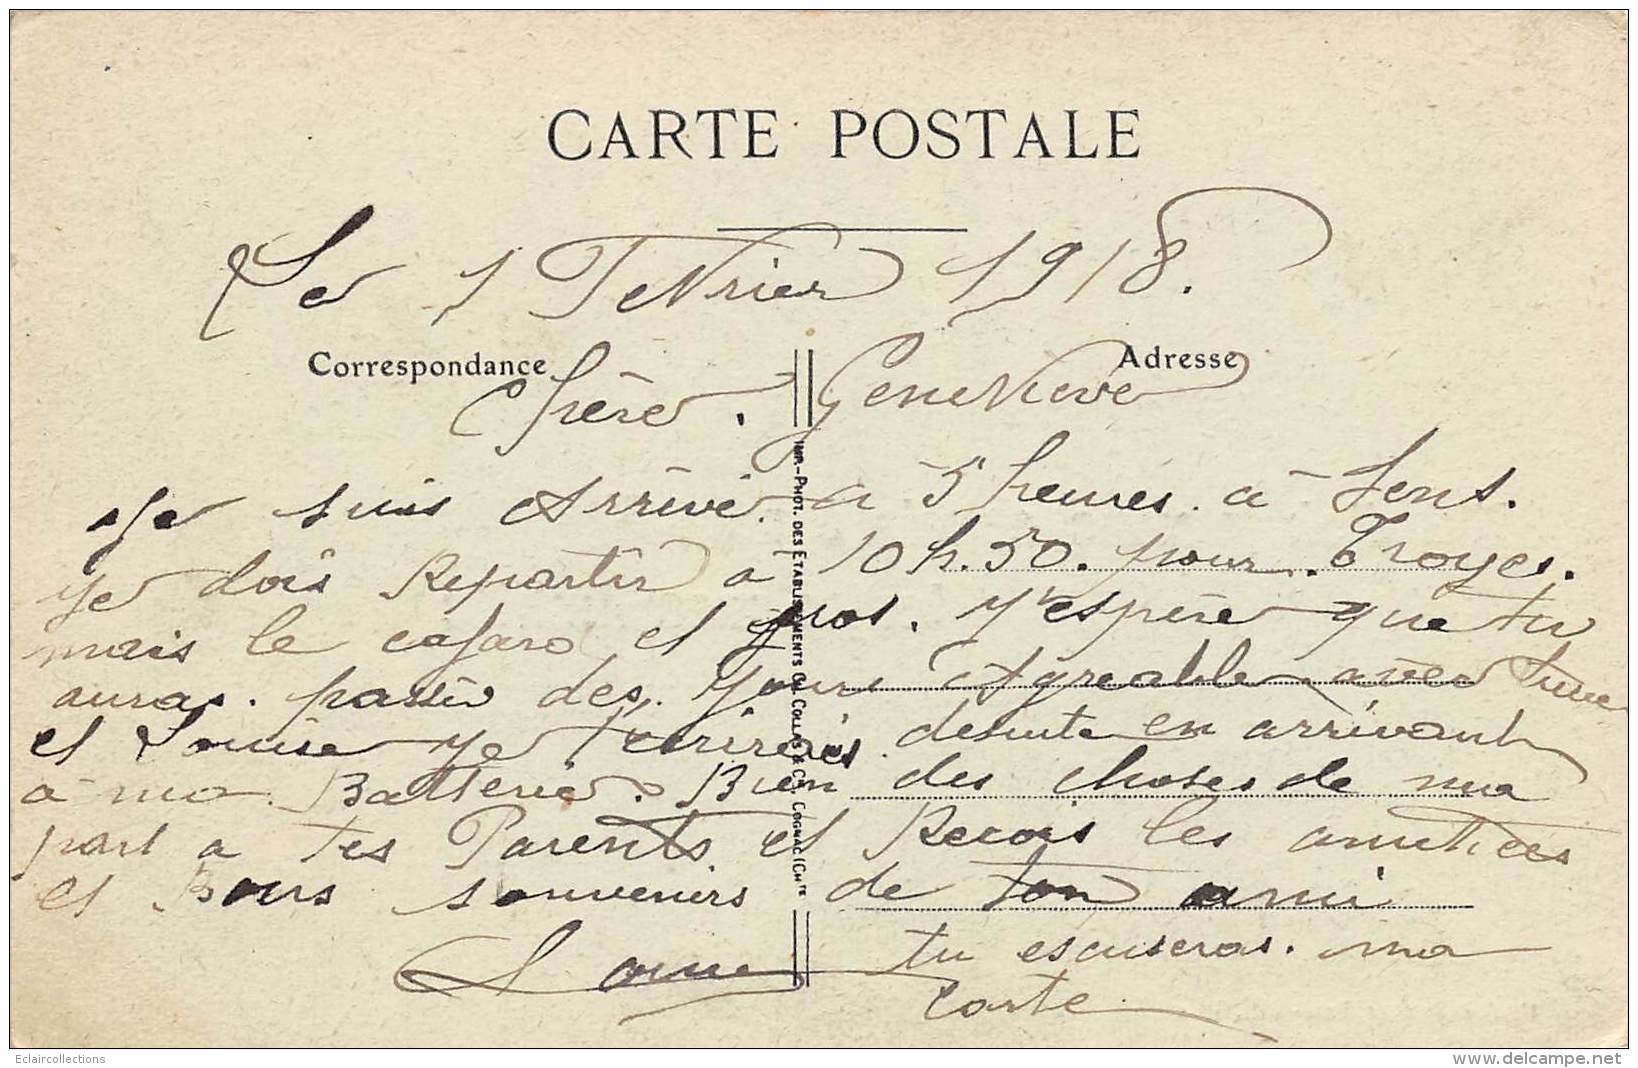 CARTE POSTALE
Le 1 Fevrier 1918.
Correspondance
Adresse
Chère. Geneviève
Je suis Arrivé a 5 heures. à Sens.
je dois Repartir à 10 h. 50. pour. Troyes.
mais le cafard et gros. J'espère que tu
auras. passer des. jours Agreable avec
et Louise je t'ecrirais desuite en arrivant
à ma. Batterie. Bien des choses de ma
part a tes Parents et Recois les amitiées
et Bons souvenirs de ton ami
tu escuseras. ma
carte
IMP.-PHOT. DES ETABLISSEMENTS DE COLLAS & Cie, COGNAC (Chte
Eclaircollections
www.delcampe.net